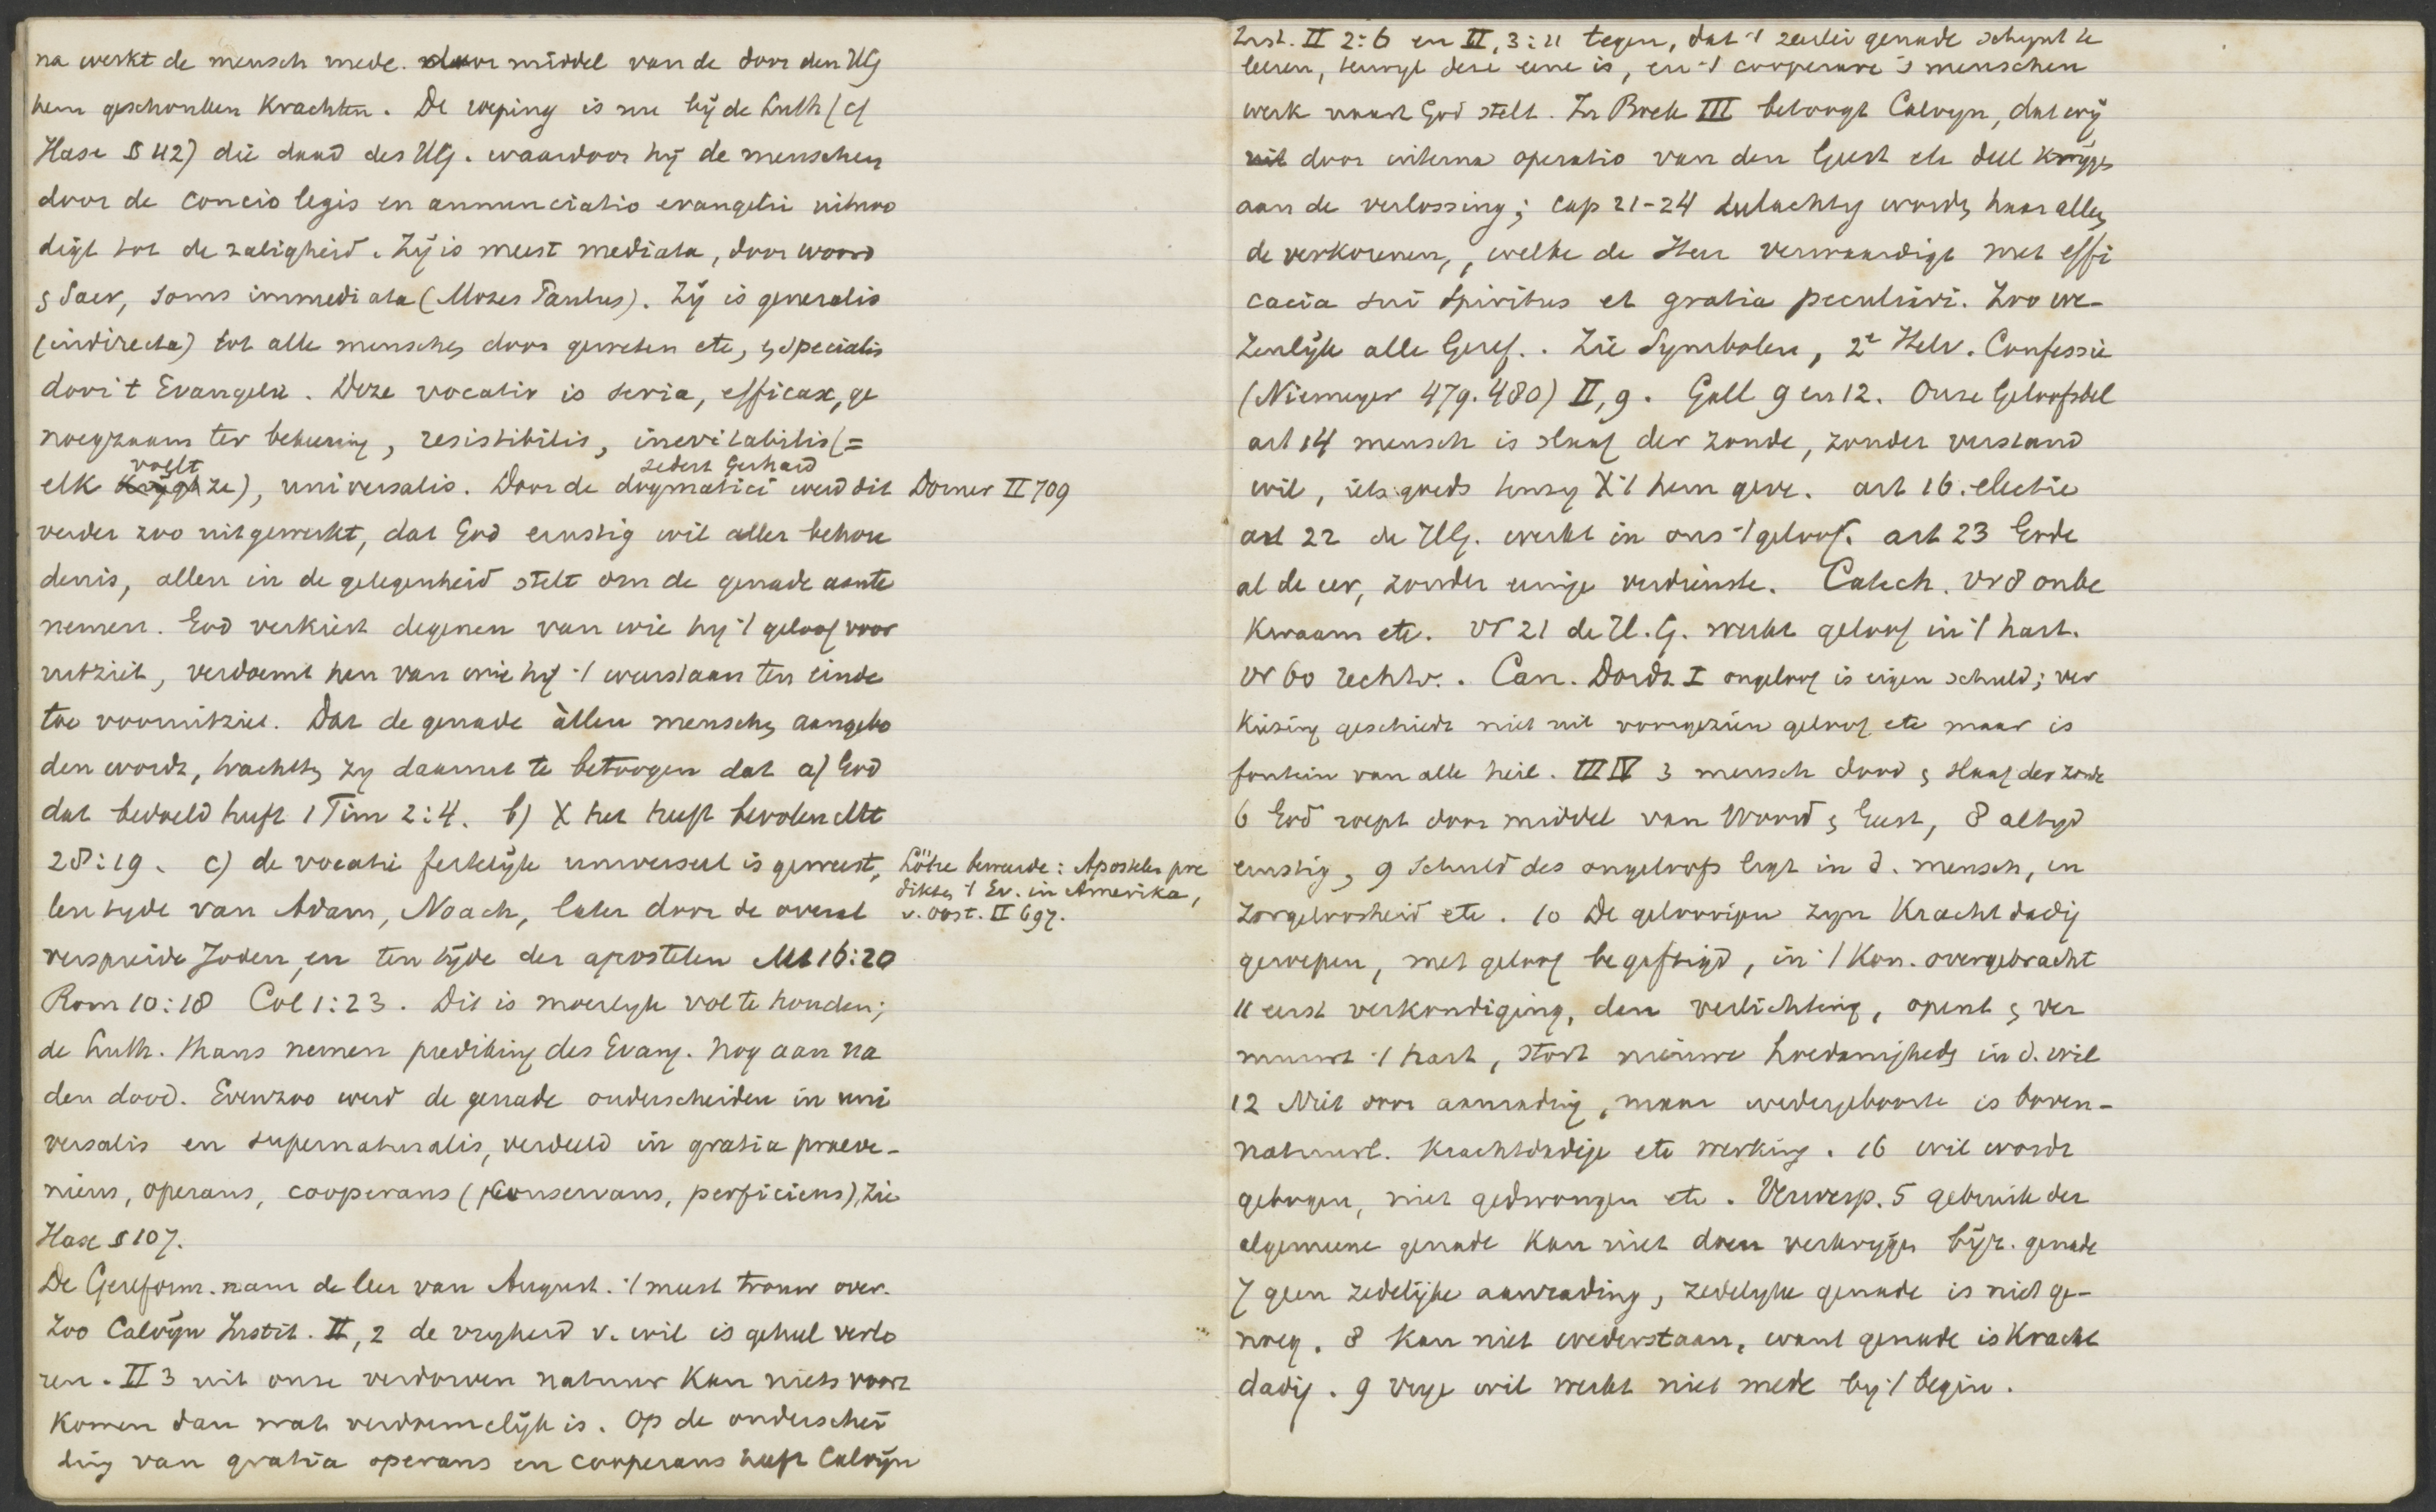 na werkt de mensch mede. door middel van de door den HG
hem geschonken krachten. De roeping is nu bij de Luth (cf
Hase § 42) die daad des HG. waardoor hij de menschen
door de concio legis en annunciatio evangelii uitnoo
digt tot de zaligheid. Zij is meest mediata, door woord
& Sacr, soms immediata (Mozes Paulus). Zij is generalis
(indirecta) tot alle menschen door geweten etc, & specialis
door 't Evangelie. Deze vocatio is seria, efficax, ge
noegzaam ter bekeering, resistibilis, inevitabilis (=
elk voelt ze), universalis. Door de dogmatici sedert Gerhard werd dit
Dorner II 709
verder zoo uitgewerkt, dat God ernstig wil aller behou
denis, allen in de gelegenheid stelt om de genade aante
nemen. God verkiest degenen van wie hij 't geloof voor
uitziet, verdoemt hen van wie hij 't weerstaan ten einde
toe vooruitziet. Dat de genade àllen menschen aangebo
den wordt, trachtten zij daarmet te betoogen dat a) God
dat bedoeld heeft 1 Tim 2:4. b) X het heeft bevolen Mt
28:19. c) de vocatie feitelijk universeel is geweest,
Lötze beweerde: Apostelen pre
dikten 't Ev. in Amerika,
v. Oost. II 697.
ten tijde van Adam, Noach, later door de overal
verspreide Joden, en ten tijde der apostelen Mt 16:20
Rom 10:18 Col 1:23. Dit is moeilijk vol te houden;
de Luth. thans nemen prediking des Evang. nog aan na
den dood. Evenzoo werd de genade onderscheiden in uni
versalis en supernaturalis, verdeeld in gratia praeve-
niens, operans, cooperans (conservans, perficiens), zie
Hase § 107.
De Gereform. nam de leer van August. 't meest trouw over.
Zoo Calvijn Instit. II, 2 de vrijheid v. wil is geheel verlo
ren. II 3 uit onze verdorven natuur kan niets voort
komen dan wat verdoemelijk is. Op de onderschei
ding van gratia operans en cooperans heeft Calvijn
Inst. II 2:6 en II, 3:11 tegen, dat 't 2erlei genade schijnt te
leeren, terwijl deze eene is, en 't cooperare 's menschen
werk naast God stelt. In Boek III betoogt Calvijn, dat wij
door interna operatio van den Geest elk deel krijgen
aan de verlossing; cap 21-24 deelachtig worden haar alleen
de verkorenen, welke de Heer verwaardigt met effi
cacia sui Spiritus et gratia peculiari. Zoo we-
zenlijk alle Geref.. Zie Symbolen, 2e Helv. Confessie
(Niemeyer 479. 480) II, 9. Gall 9 en 12. Onze Geloofsbel
art 14 mensch is slaaf der zonde, zonder verstand
wil, iets goeds tenzij X 't hem geve. art 16. electie
art 22 de HG. werkt in ons 't geloof. art 23 Gode
al de eer, zonder eenige verdienste. Catech. vr 8 onbe
kwaam etc. vr 21 de H.G. werkt geloof in 't hart.
vr 60 rechtv.. Can. Dordr. I ongeloof is eigen schuld; ver
kiezing geschiedt niet uit voorgezien geloof etc maar is
fontein van alle heil. III IV 3 mensch dood & slaaf der zonde
6 God roept door middel van Woord & Geest, 8 altijd
ernstig, 9 Schuld des ongeloofs ligt in d. mensch, in
zorgeloosheid etc. 10 De geloovigen zijn krachtdadig
geroepen, met geloof begiftigd, in 't Kon. overgebracht
11 eerst verkondiging, dan verlichting, opent & ver
murwt 't hart, stort nieuwe hoedanigheden in d. wil
12 Niet door aanrading, maar wedergeboorte is boven-
natuurl. krachtdadige etc werking. 16 wil wordt
gebogen, niet gedwongen etc. Verwerp. 5 gebruik der
algemeene genade kan niet doen verkrijgen bijz. genade
7 geen zedelijke aanrading, zedelijke genade is niet ge-
noeg. 8 kan niet wederstaan, want genade is kracht
dadig. 9 vrije wil werkt niet mede bij 't begin.